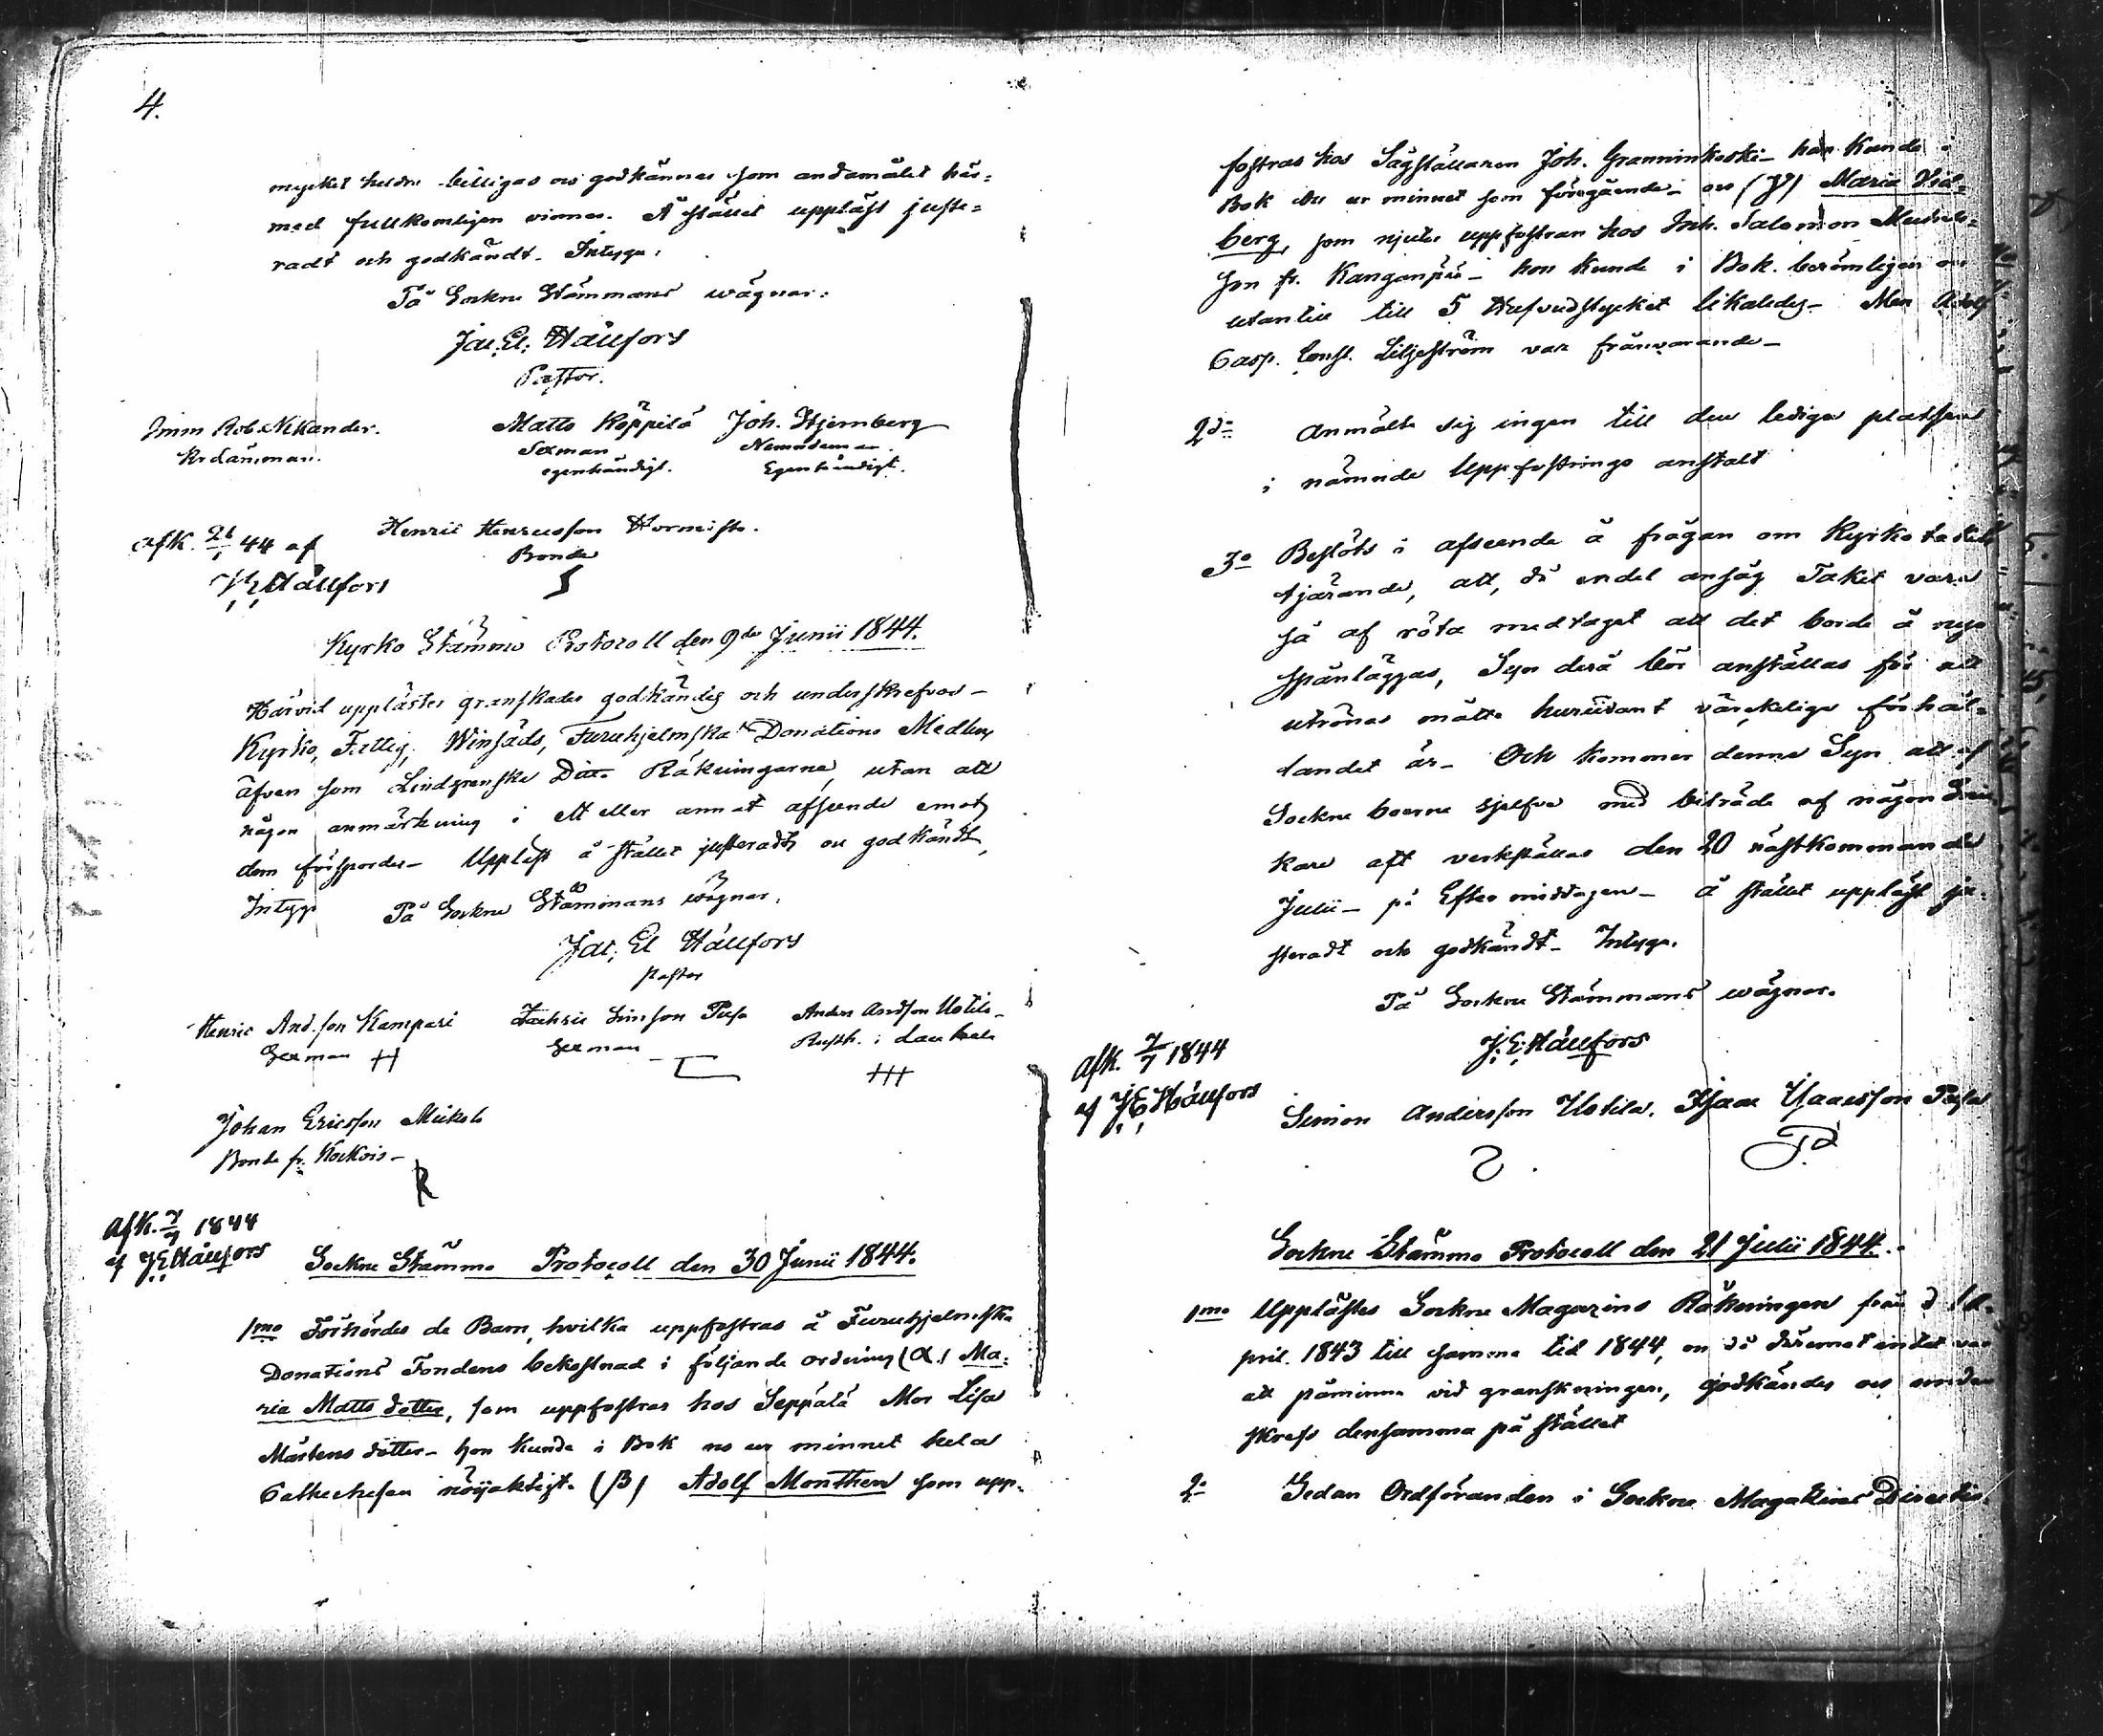 4.
mycket heldre billigas och godkännes som andamålet här=
med fullkomligen vinnes. Å stället uppläst juste=
radt och godkändt. Intyga:
På Sockne Stämmans wägnar:
Jac. El. Hällfors
Pastor.
Imm Rob. Nikander.
Matts Köppilä Joh. Stjernberg
Sexman Nämndeman
egenhändigt. Egenhändigt.
afk. 44 af
J. E. Hällfors
Henric Henricsson
Bonde
Kyrko Stämmo Protocoll den 9de Junii 1844.
Härvid upplästes granskades godkändes och underskrefvos
Kyrko, Fattig, Winsäds, Furuhjelmska Donations Medlens
äfven som Lindgrenska Dito Räkningarne, utan att
någon anmärkning i ett eller annat afseende emot
dem förspordes. Uppläst å stället justeradt och godkändt,
Intyga På Sockne Stämmans wägnar.
Jac. El Hällfors
Pastor
Henric And.son Kampari
Sexman
Simson Pusa
Sexman
Anders Andsson Uotila
Rusth. i
Johan Ericsson Mickola
Bonde fr.
Afk. 7/7 1844
af J. E. Hällfors
Sockne Stämmo Protocoll den 30 Junii 1844.
1mo Förhördes de Barn, hvilka uppfostras å Furuhjelmska
Donations Fondens bekostnad i följande ordning (α.) Ma=
ria Matts dotter, som uppfostras hos Seppälä Mor Lisa
Mårtens dotter - hon kunde i Bok och ur minnet hela
Cathechesen nöjaktigt. (β) Adolf Monthen som upp=
fostras hos Sågställaren Joh. Granninkoski - han kunde i
Bok och ur minnet som föregående - och (γ) Maria Vid=
berg, som njuter uppfostran hos Inh. Salomon
son fr. Kanganpää - hon kunde i Bok. berömligen och
utantill till 5 Hufvudstycket likaledes - Men Adolf
Casp. Const. Liljeström var frånvarande -
2do Anmälte sig ingen till den lediga platsen
i nämnde Uppfostrings anstalt
3o Beslöts i afseende å frågan om Kyrko takets
tjärande, att, då endel ansåg Taket vara
så af röta medtaget att det borde å nyo
spånläggas, Syn derå bör anställas för att
utrönas måtte hurudant värckeliga förhål=
landet är - Och kommer denna Syn att af
Sockne boerne sjelfva med biträde af någon Snic=
kare att verkställas den 20 nästkommande
Julii - på Eftermiddagen - å stället uppläst ju=
steradt och godkändt - Intyga.
På Sockne Stämmans wägnar.
J. E. Hällfors
Afk. 7/7 1844
af J. E. Hällfors
Simon Andersson Uotila. Isaac Isaacsson Pusa
Sockne Stämmo Protocoll den 21 Julii 1844.
1mo Upplästes Sockne Magazins Räkningen från d 1 A=
pril. 1843 till samma tid 1844, och då däremot intet var
att påminna vid granskningen, godkändes och under
skrefs densamma på stället
2o Sedan Ordföranden i Sockne Magazins Directio=